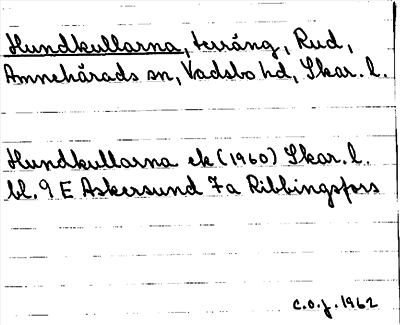 Hundkullarna, terräng, Rud,
Amnehärads sn, Vadsbo hd, Skar. l.
Hundkullarna ek (1960) Skar. l.
bl. 9 E Askersund 7a Ribbingsfors
C.O.J. 1962